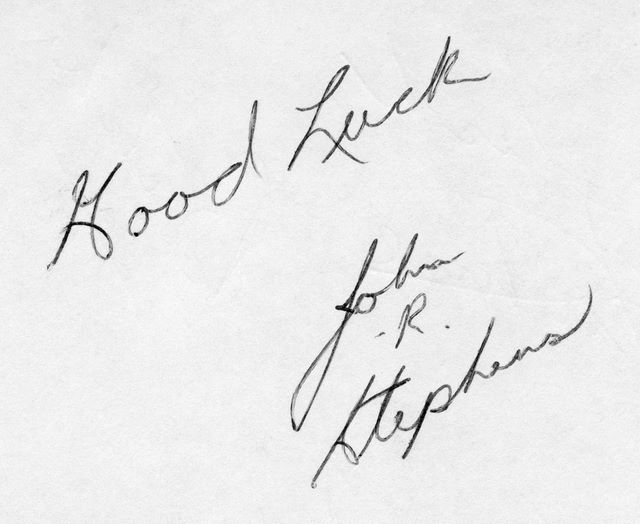 Good Luck
John
-R.
Stephens